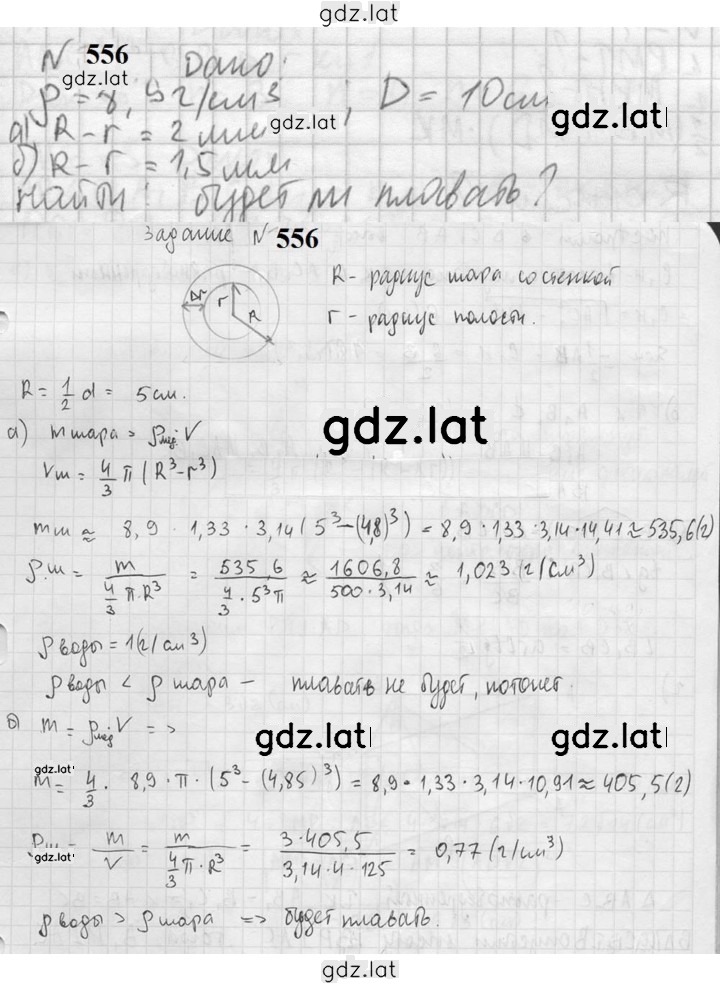 gdz.lat
N 556 Дано:
gdz.lat
ρ = 8,9 г/см³ ; D = 10см
gdz.lat
gdz.lat
а) R - r = 2 мм
б) R - r = 1,5 мм
Найти: будет ли плавать?
Задание N 556
Δr r R
R - радиус шара со стенкой
r - радиус полости.
R = 1/2 d = 5 см.
gdz.lat
а) m шара = ρмед. V
Vш = 4/3 π (R³-r³)
mш ≈ 8,9 · 1,33 · 3,14 (5³-(4,8)³) = 8,9 · 1,33 · 3,14 · 14,41 ≈ 535,6(г)
ρш = m / (4/3 π·R³) = 535,6 / (4/3 · 5³π) ≈ 1606,8 / (500 · 3,14) ≈ 1,023 (г/см³)
ρ воды = 1(г/см³)
ρ воды < ρ шара - плавать не будет, потонет.
б) m = ρмед V =>
gdz.lat
gdz.lat
gdz.lat
m = 4/3 · 8,9 · π · (5³ - (4,85)³) = 8,9 · 1,33 · 3,14 · 10,91 ≈ 405,5(г)
ρш = m/V = m / (4/3 π·R³) = 3·405,5 / (3,14·4·125) = 0,77 (г/см³)
gdz.lat
ρ воды > ρ шара => будет плавать.
gdz.lat